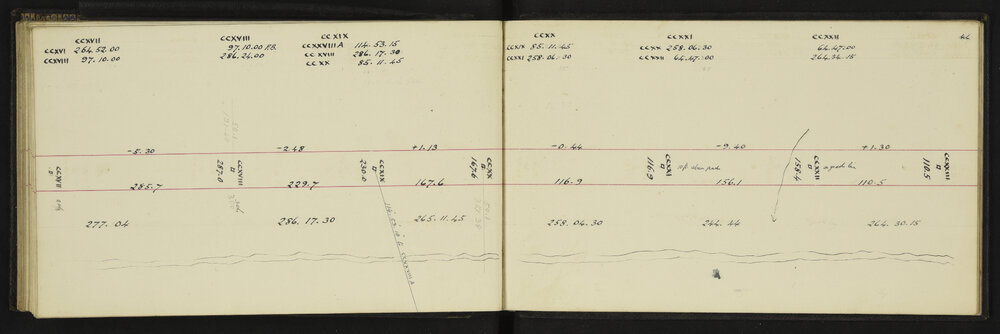 CCXVII
CCXVI 264.52.00
CCXVIII 97.10.00
CCXVIII
97.10.00 P.B.
286.24.00
CCXIX
CCXXVIIIA 114.53.15
CCXVIII 286.17.30
CCXX 85.11.45
-5.30
-2.48
+1.13
CCXVII
CCXVIII
287.0
CCXIX
230.0
CCXX
167.6
285.7
229.7
167.6
277.04
286.17.30
265.11.45
CCXXVIIIA
CCXX
CCXIX 85.11.45
CCXXI 258.06.30
CCXXI
CCXX 258.06.30
CCXXII 64.47.00
CCXXII
64.47.00
264.34.15
46
-0.44
-9.40
+1.30
CCXXI
116.9
CCXXII
158.4
CCXXIII
110.5
116.9
156.1
110.5
258.04.30
244.44
264.30.15